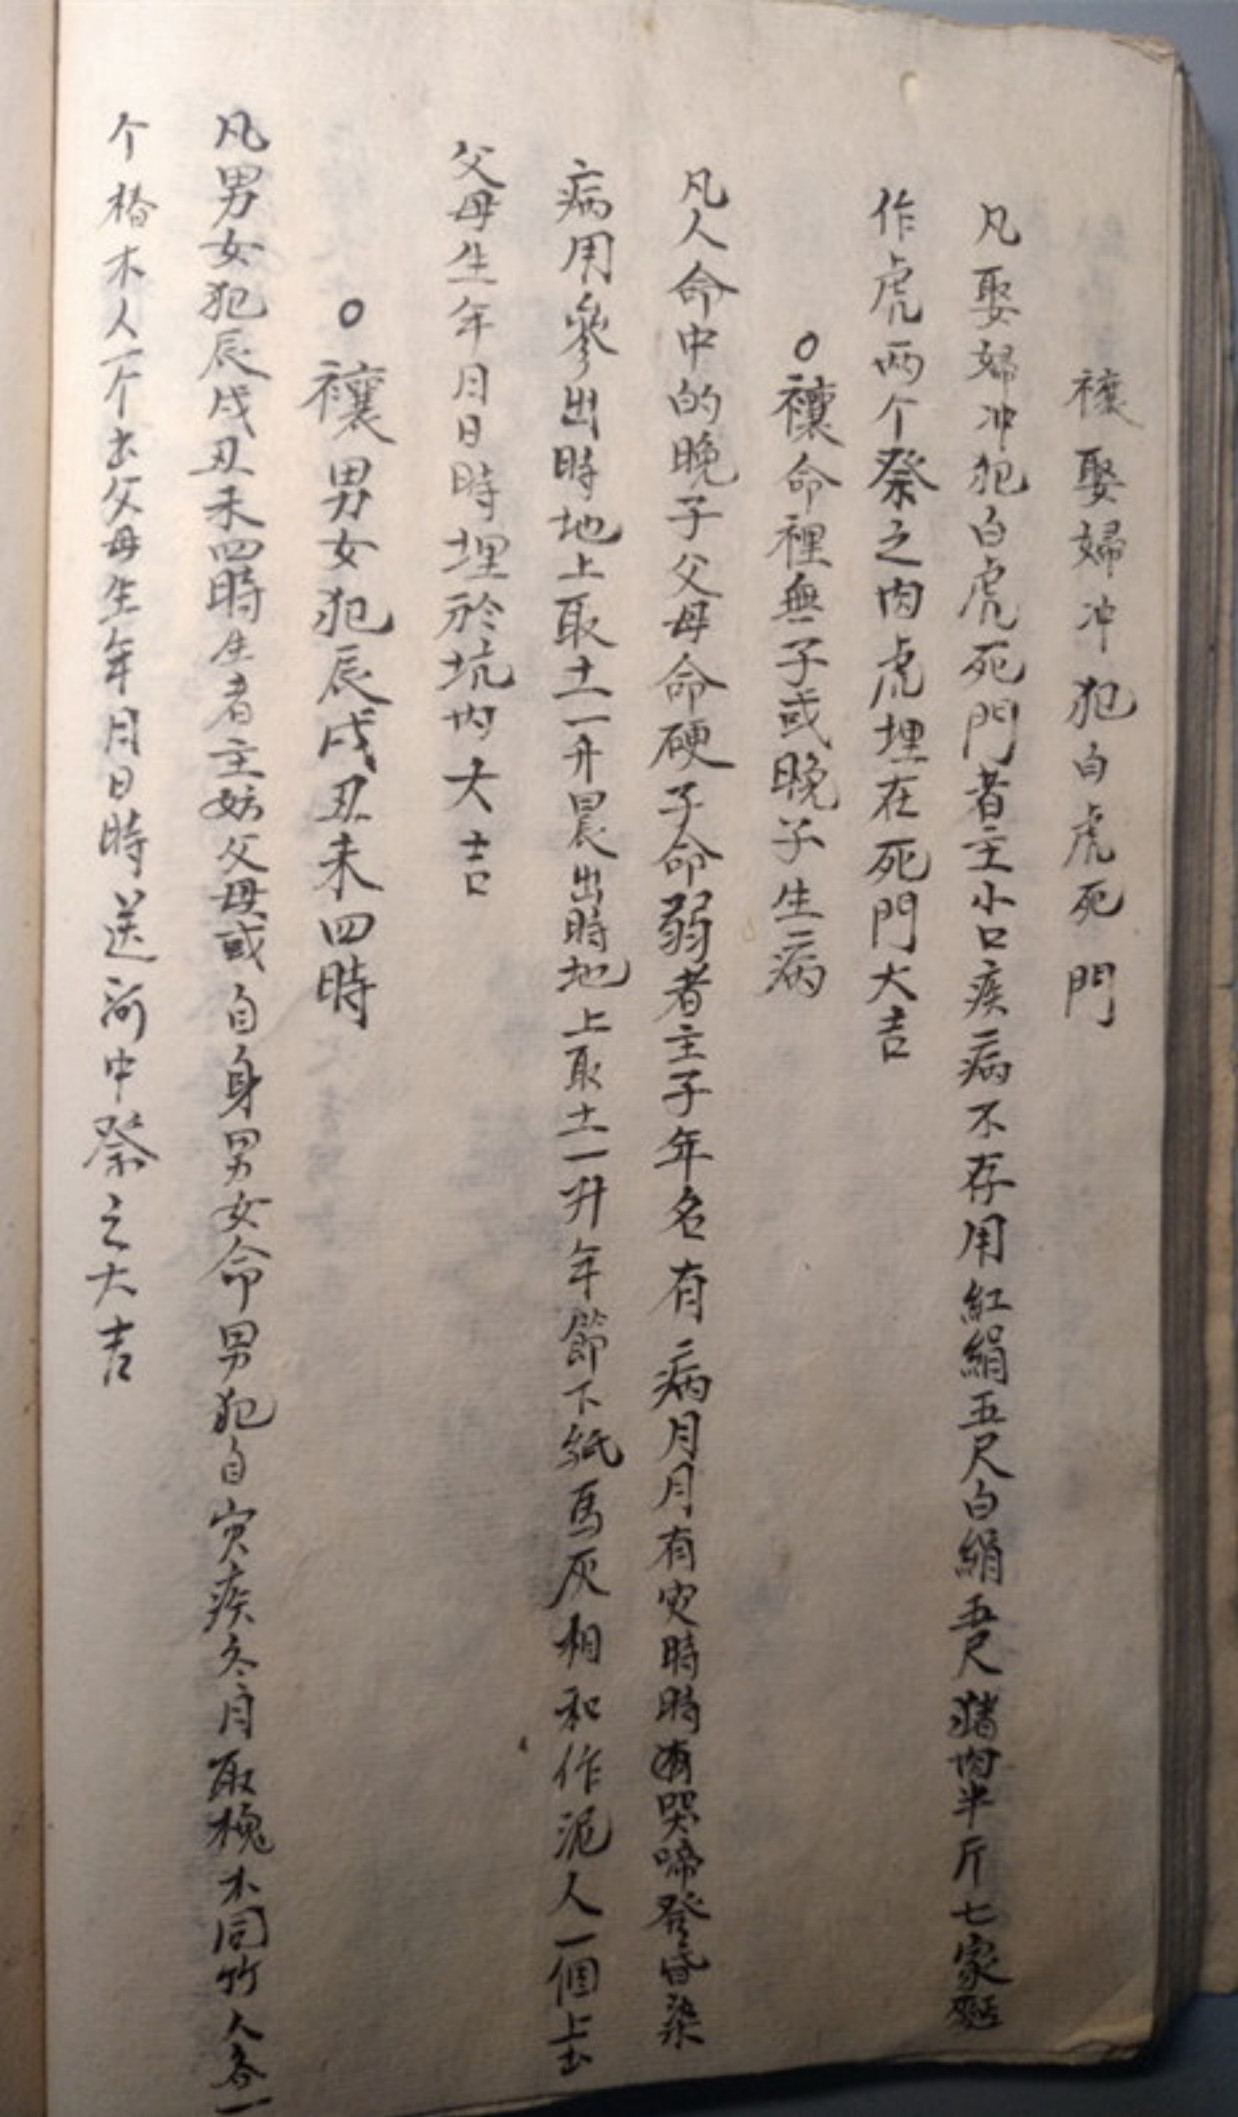 禳娶婦冲犯白虎死門
凡娶婦冲犯白虎死門者主小口疾病不存用紅絹五尺白絹五尺猪肉半斤七家麪
作虎两个祭之肉虎埋在死門大吉
○禳命裡無子或晚子生病
凡人命中的晚子父母命硬子命弱者主子年名有病月月有灾時時有哭啼發昏染
病用參出時地上取土一升晨出時地上取土一升年節下紙馬灰相和作泥人一個上
父母生年月日時埋於坑内大吉
○禳男女犯辰戌丑未四時
凡男女犯辰戌丑未四時生者主妨父母或自身男女命男犯自灾疾冬月取槐木同竹人各一
个椿木人一个去父母生年月日時送河中祭之大吉